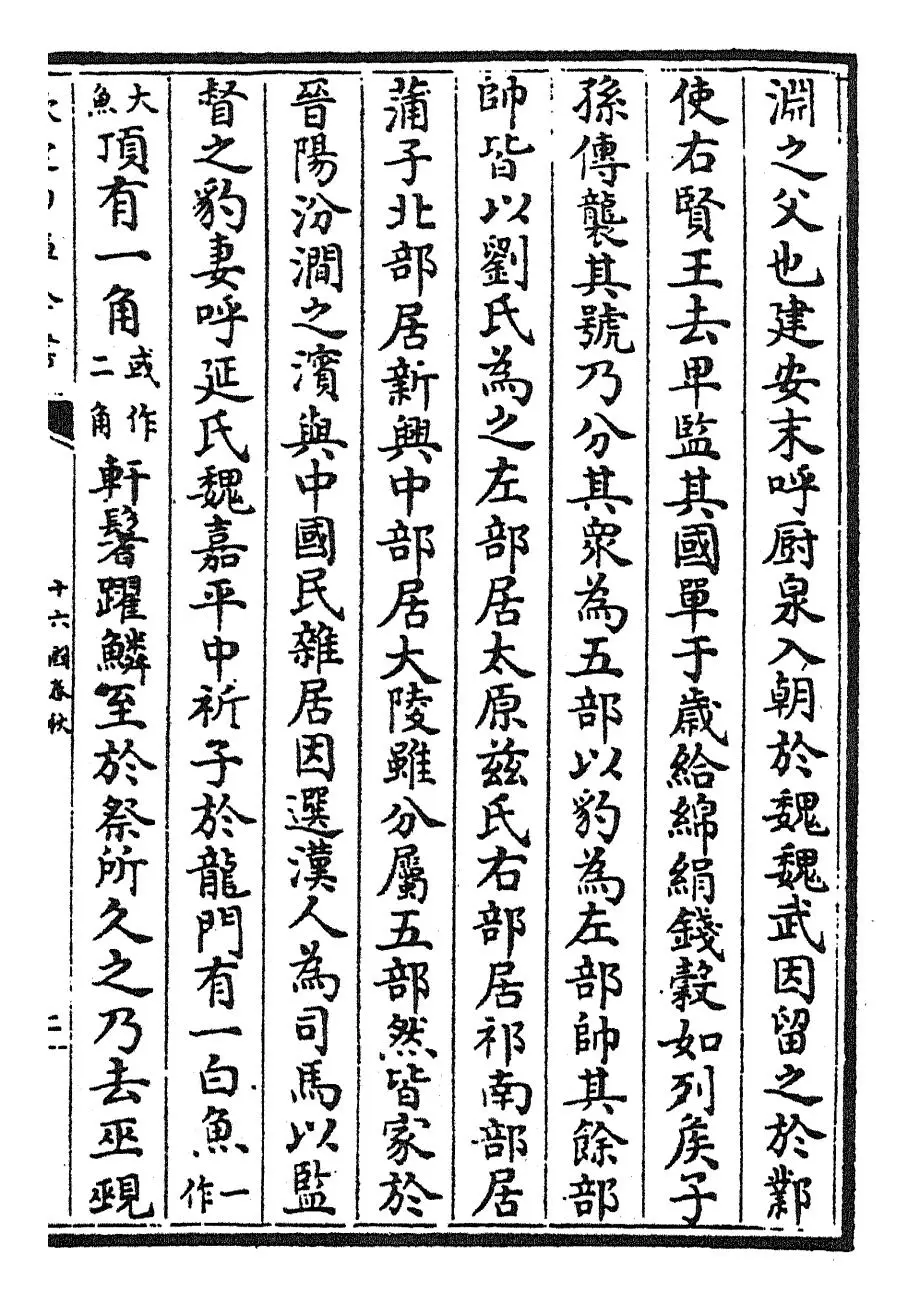 淵之父也建安末呼厨泉入朝於魏魏武因留之於鄴
使右賢王去卑監其國單于歳給綿絹錢穀如列侯子
孫傳襲其號乃分其衆為五部以豹為左部帥其餘部
帥皆以劉氏為之左部居太原兹氏右部居祁南部居
蒲子北部居新興中部居大陵雖分屬五部然皆家於
晉陽汾澗之濱與中國民雜居因選漢人為司馬以監
督之豹妻呼延氏魏嘉平中祈子於龍門有一白魚一作
大魚頂有一角或作二角軒鬐躍鱗至於祭所久之乃去巫覡
十六國春秋
二